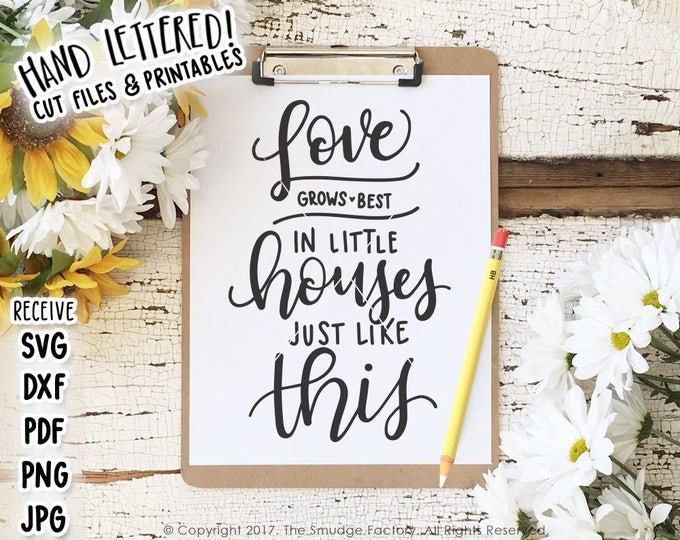 HAND LETTERED!
CUT FILES & PRINTABLES
Love
GROWS♥BEST
IN LITTLE
houses
JUST LIKE
this
HB
RECEIVE
SVG
DXF
PDF
PNG
JPG
© Copyright 2017. The Smudge Factory. All Rights Reserved.